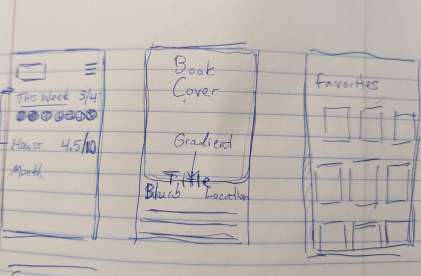 This Week 3/4
Hours 4.5/10
Month
Book
Cover
Gradient
Title
Blurb Location
Favorites